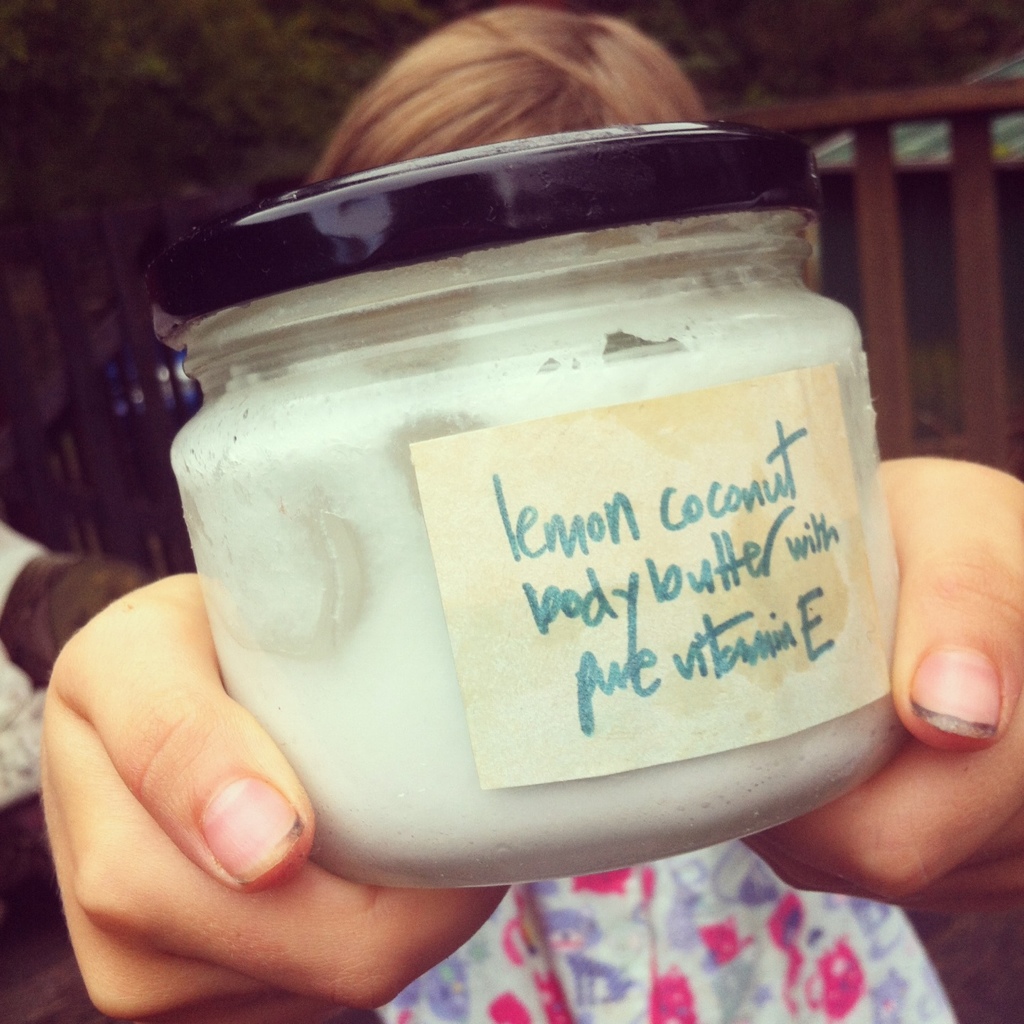 lemon coconut
body butter with
pure vitamin E